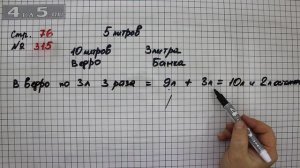 4 для 5 ов
Стр. 76 5 литров
№ 315
10 литров 3 литра
Ведро Банка
В ведро по 3л 3 раза = 9л + 3л = 10л и 2л